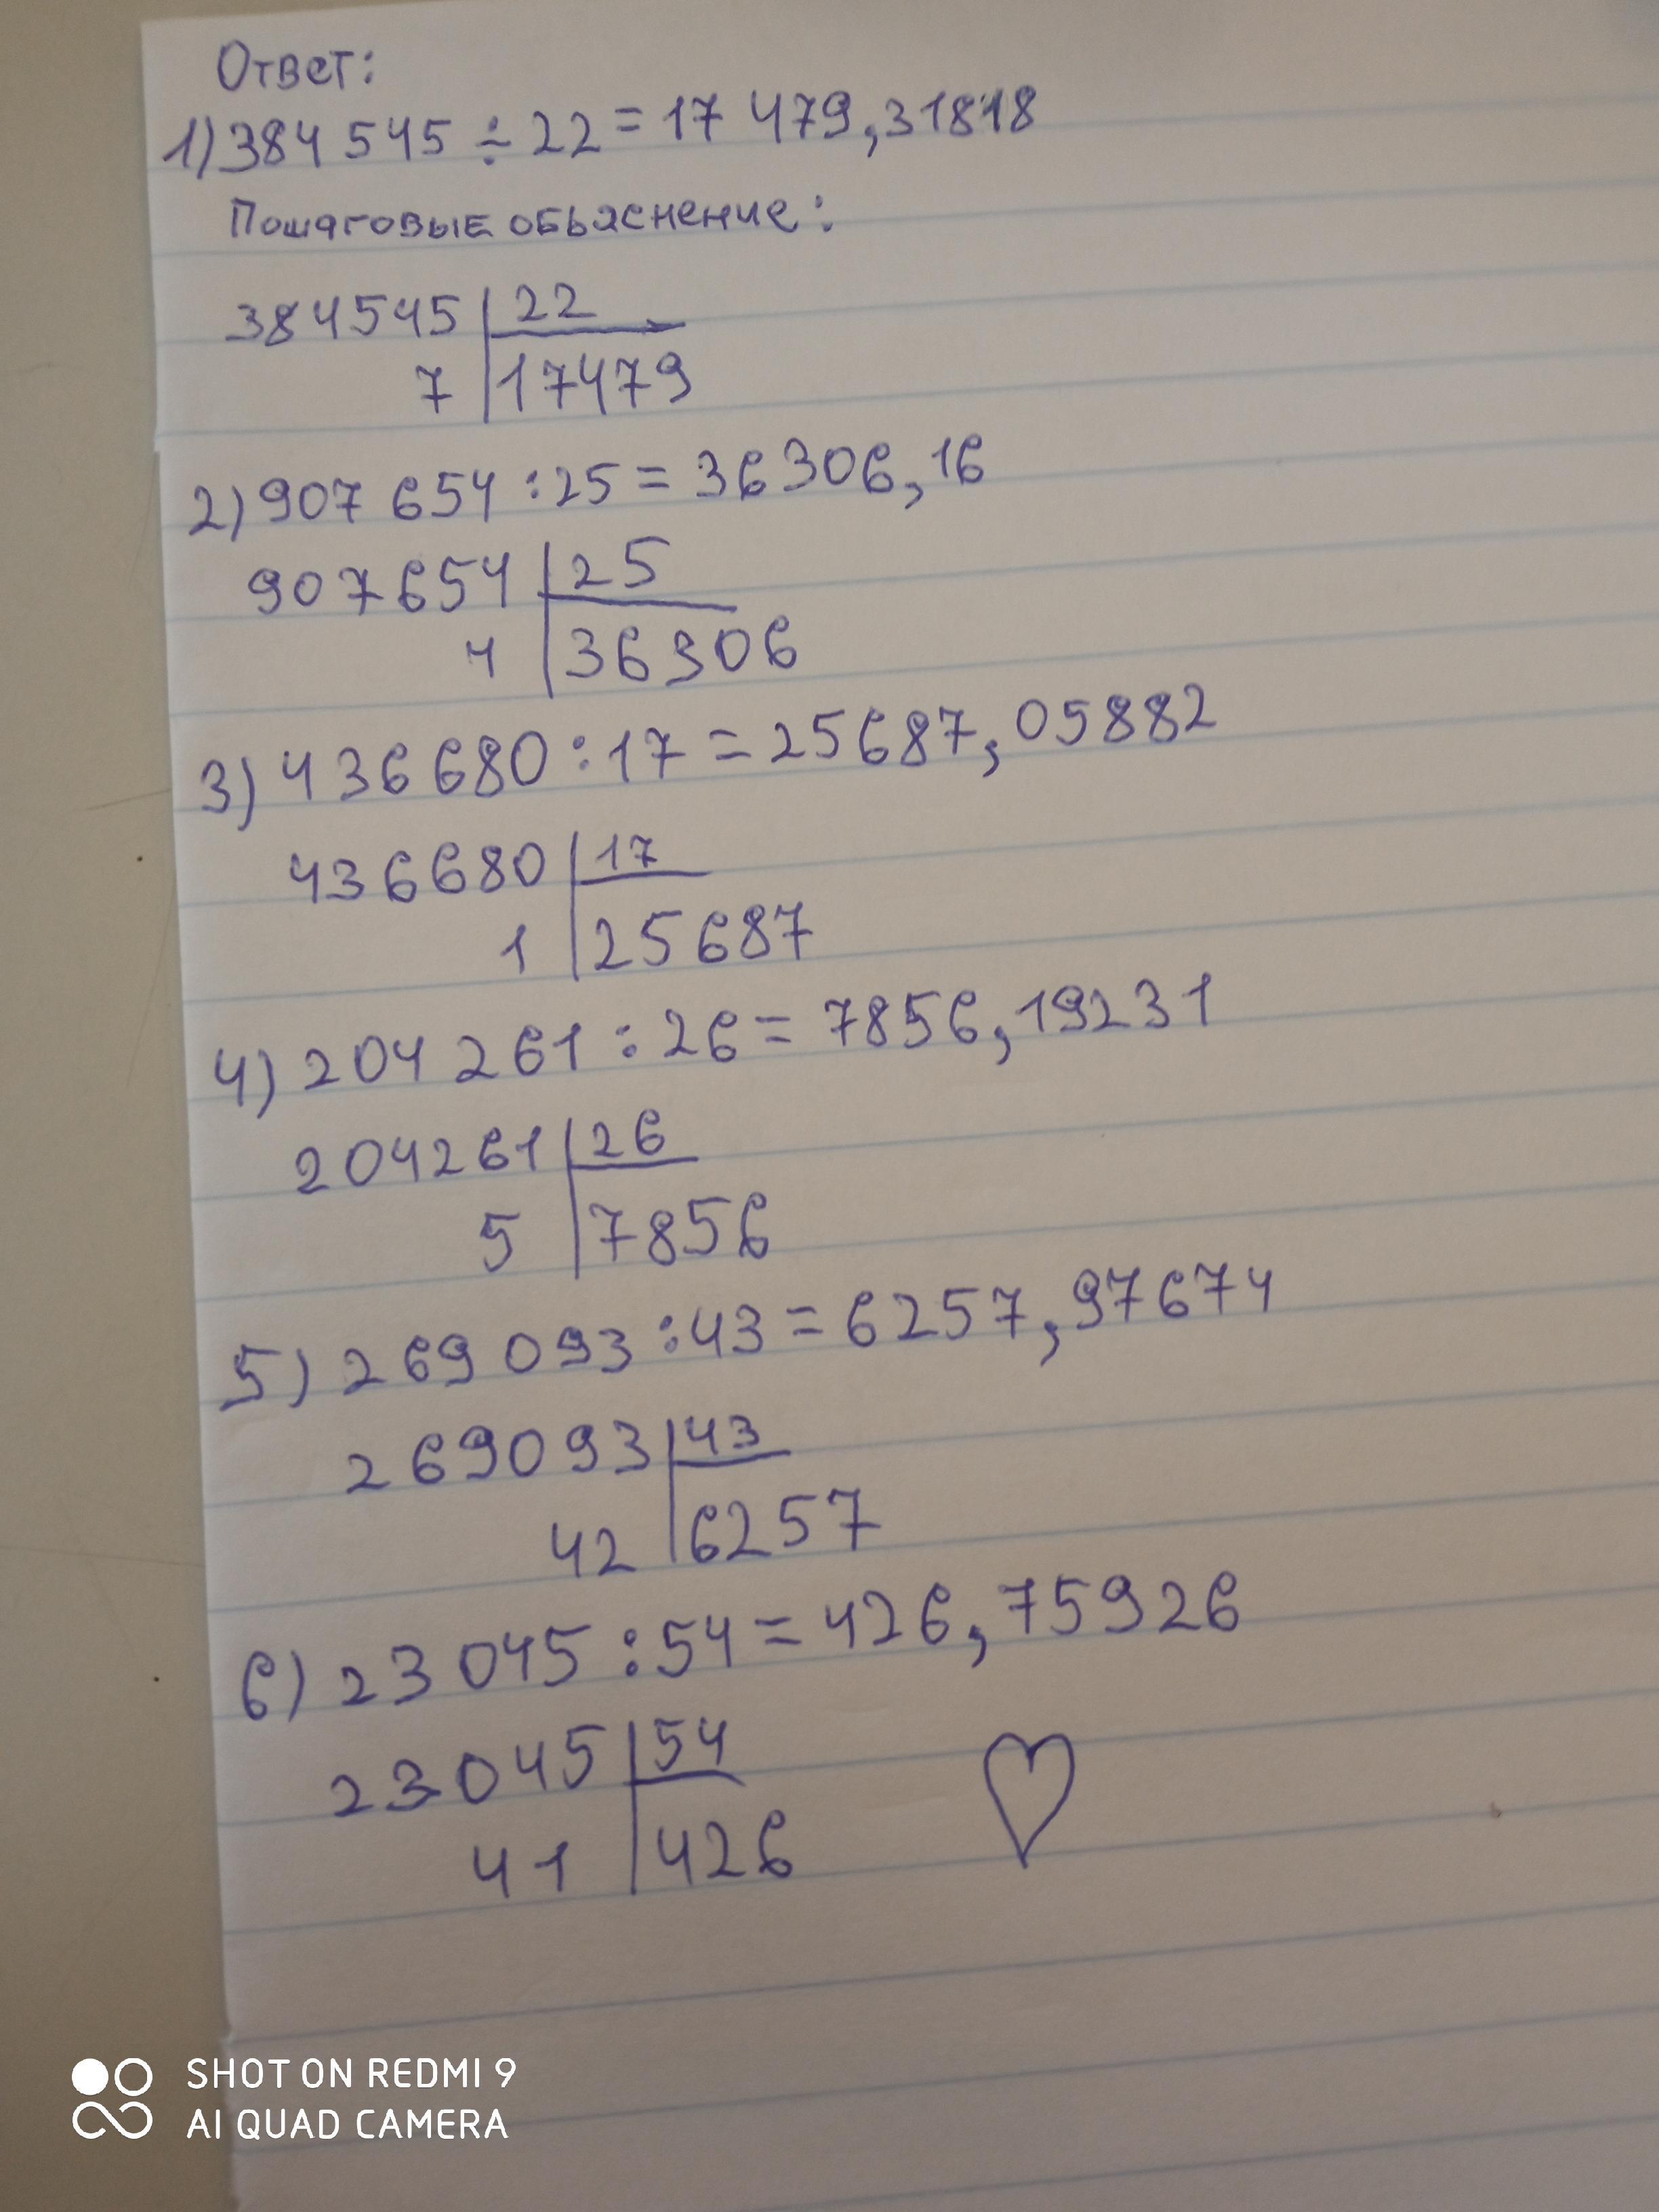 Ответ:
1) 384 545 ÷ 22 = 17 479,31818
Пошаговые обьяснение:
384545 22
7 17479
2) 907 654 : 25 = 36306,16
907654 25
4 36306
3) 436 680 : 17 = 25687,05882
436680 17
1 25687
4) 204 261 : 26 = 7856,19231
204261 26
5 7856
5) 269 093 : 43 = 6257,97674
269093 43
42 6257
6) 23 045 : 54 = 426,75926
23045 54
41 426
SHOT ON REDMI 9
AI QUAD CAMERA